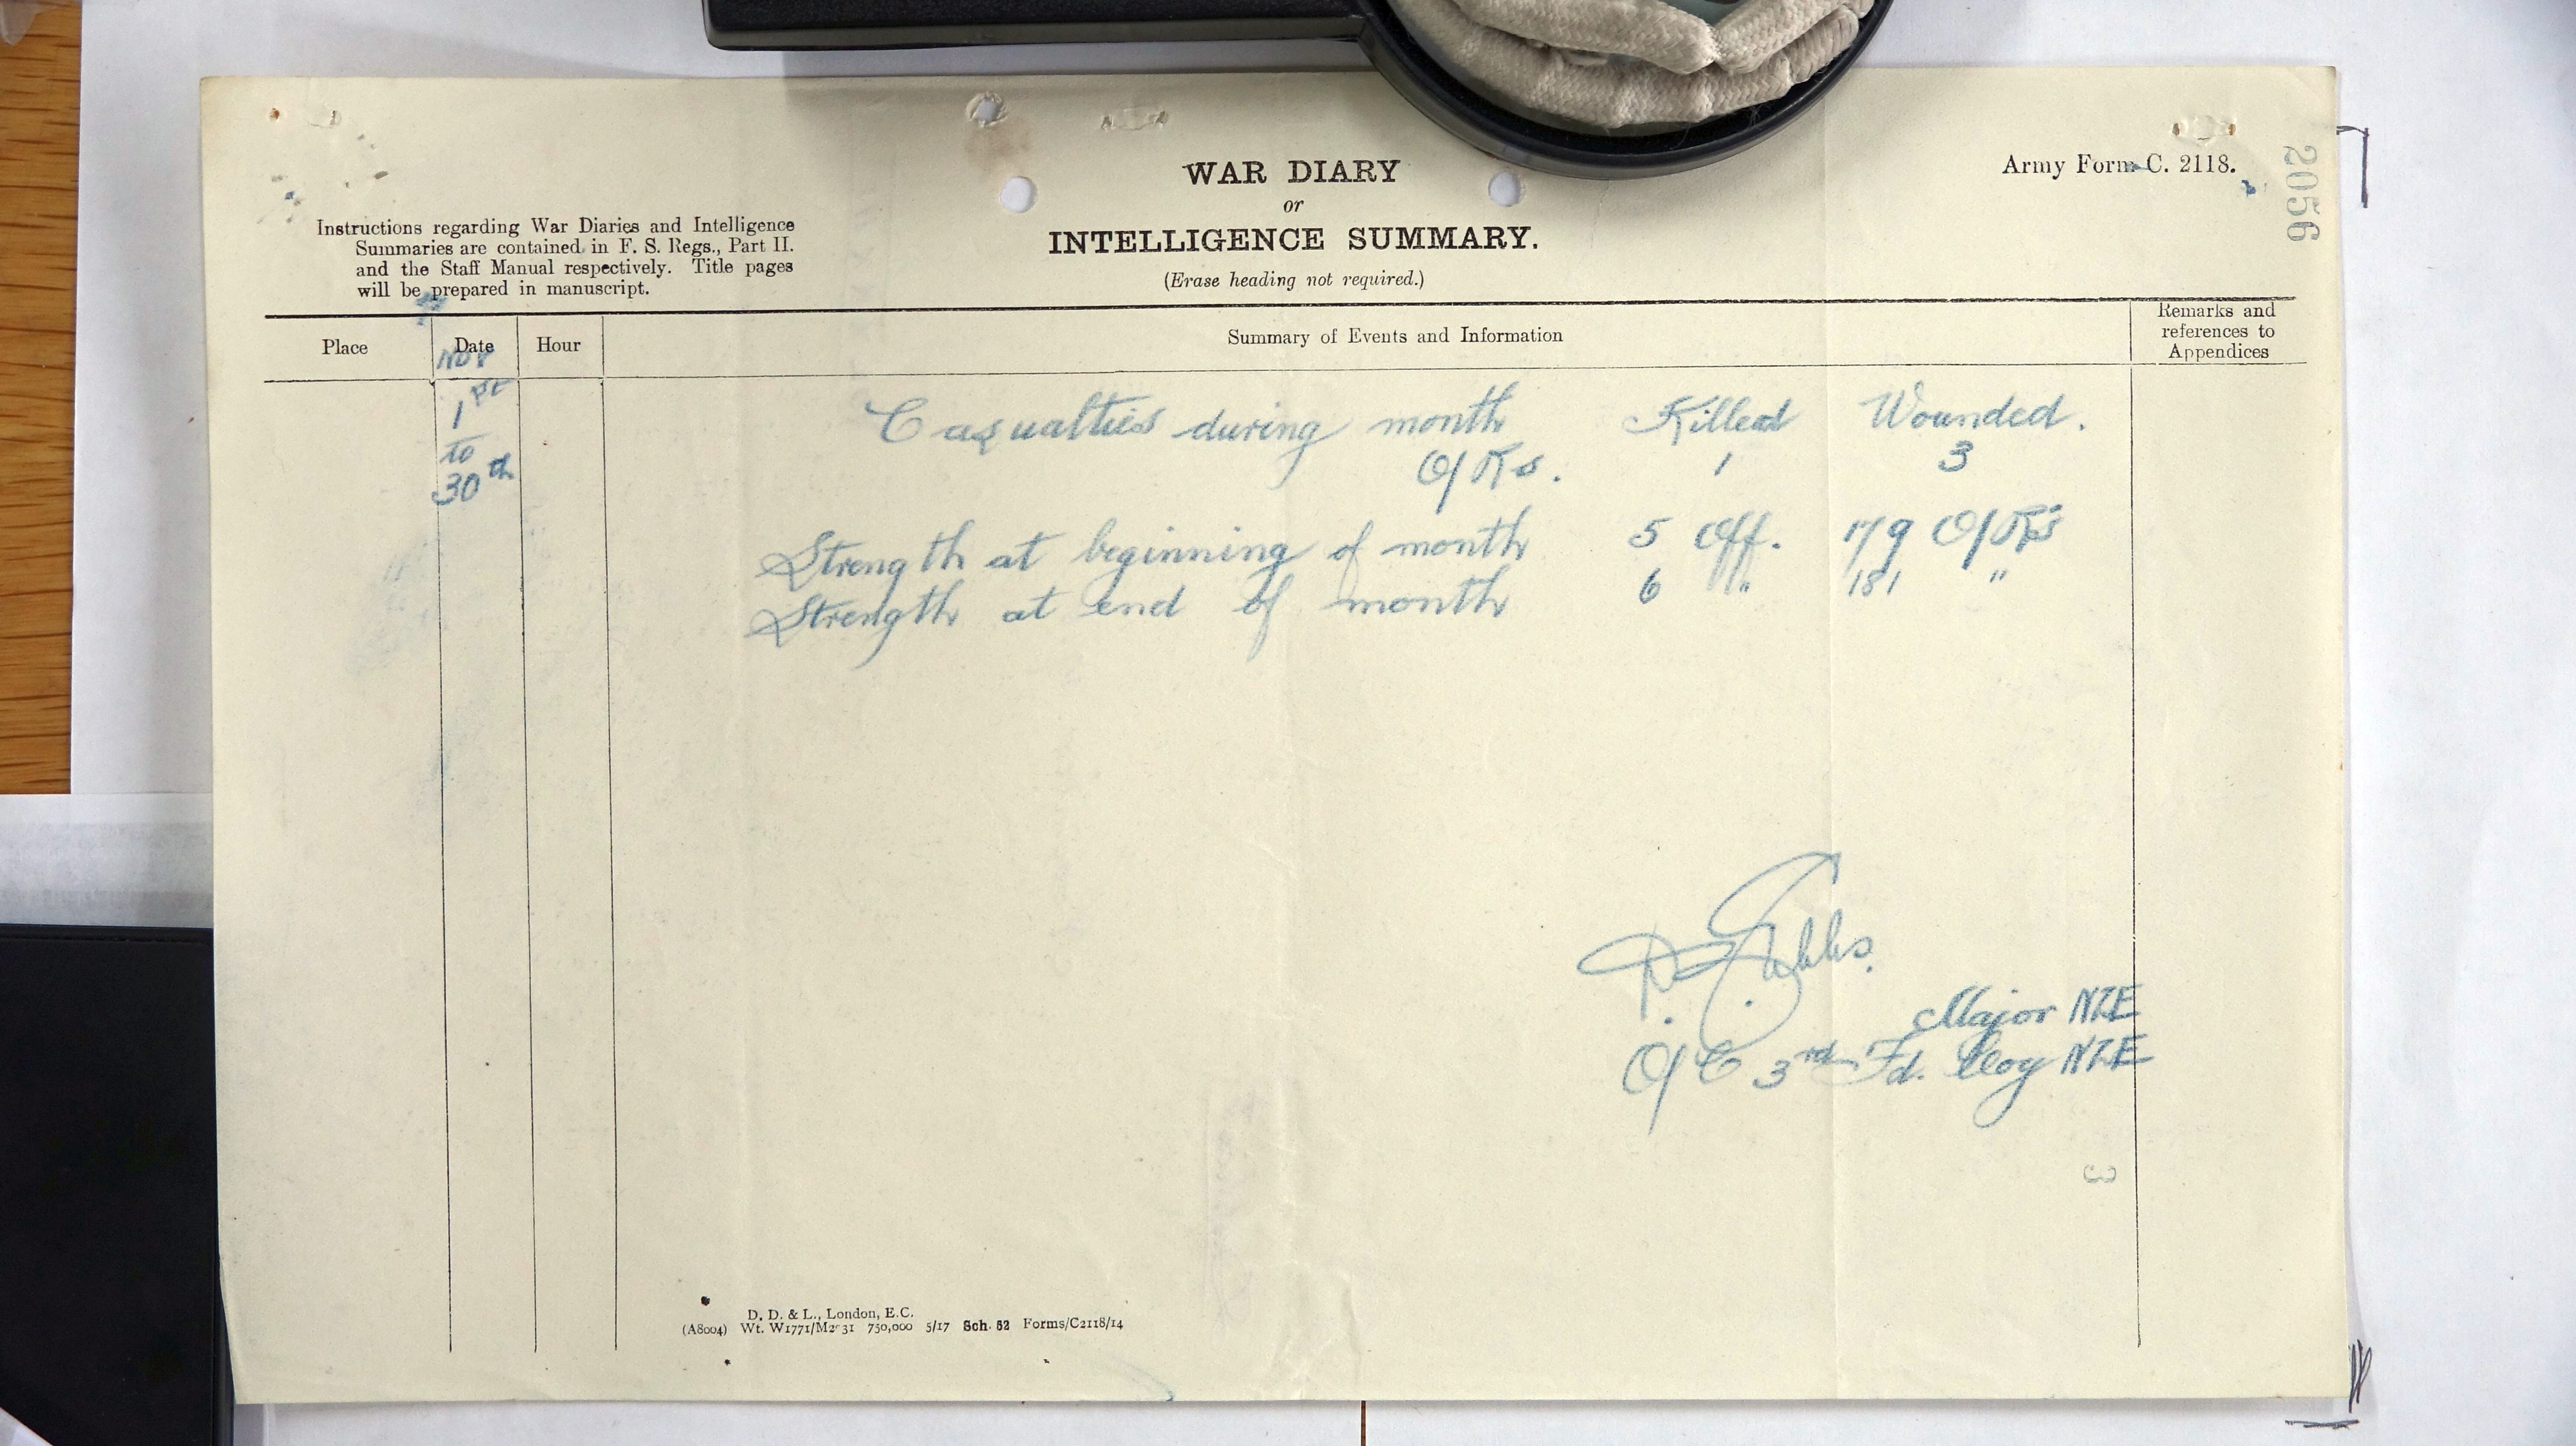 WAR DIARY
or
INTELLIGENCE SUMMARY.
(Erase heading not required.)
Army Form C. 2118.
2056
Instructions regarding War Diaries and Intelligence
Summaries are contained in F. S. Regs., Part II.
and the Staff Manual respectively. Title pages
will be prepared in manuscript.
Place Date Hour Summary of Events and Information Remarks and
references to
Appendices
Nov
1st
to
30th
Casualties during month Killed Wounded.
O/Rs. 1 3
Strength at beginning of month 5 Off. 179 O/Rs
Strength at end of month 6 " 181 "
Major NZE
O/C 3rd Fd. Coy NZE
3
D. D. & L., London, E.C.
(A8004) Wt. W1771/M2031 750,000 5/17 Sch. 52 Forms/C2118/14